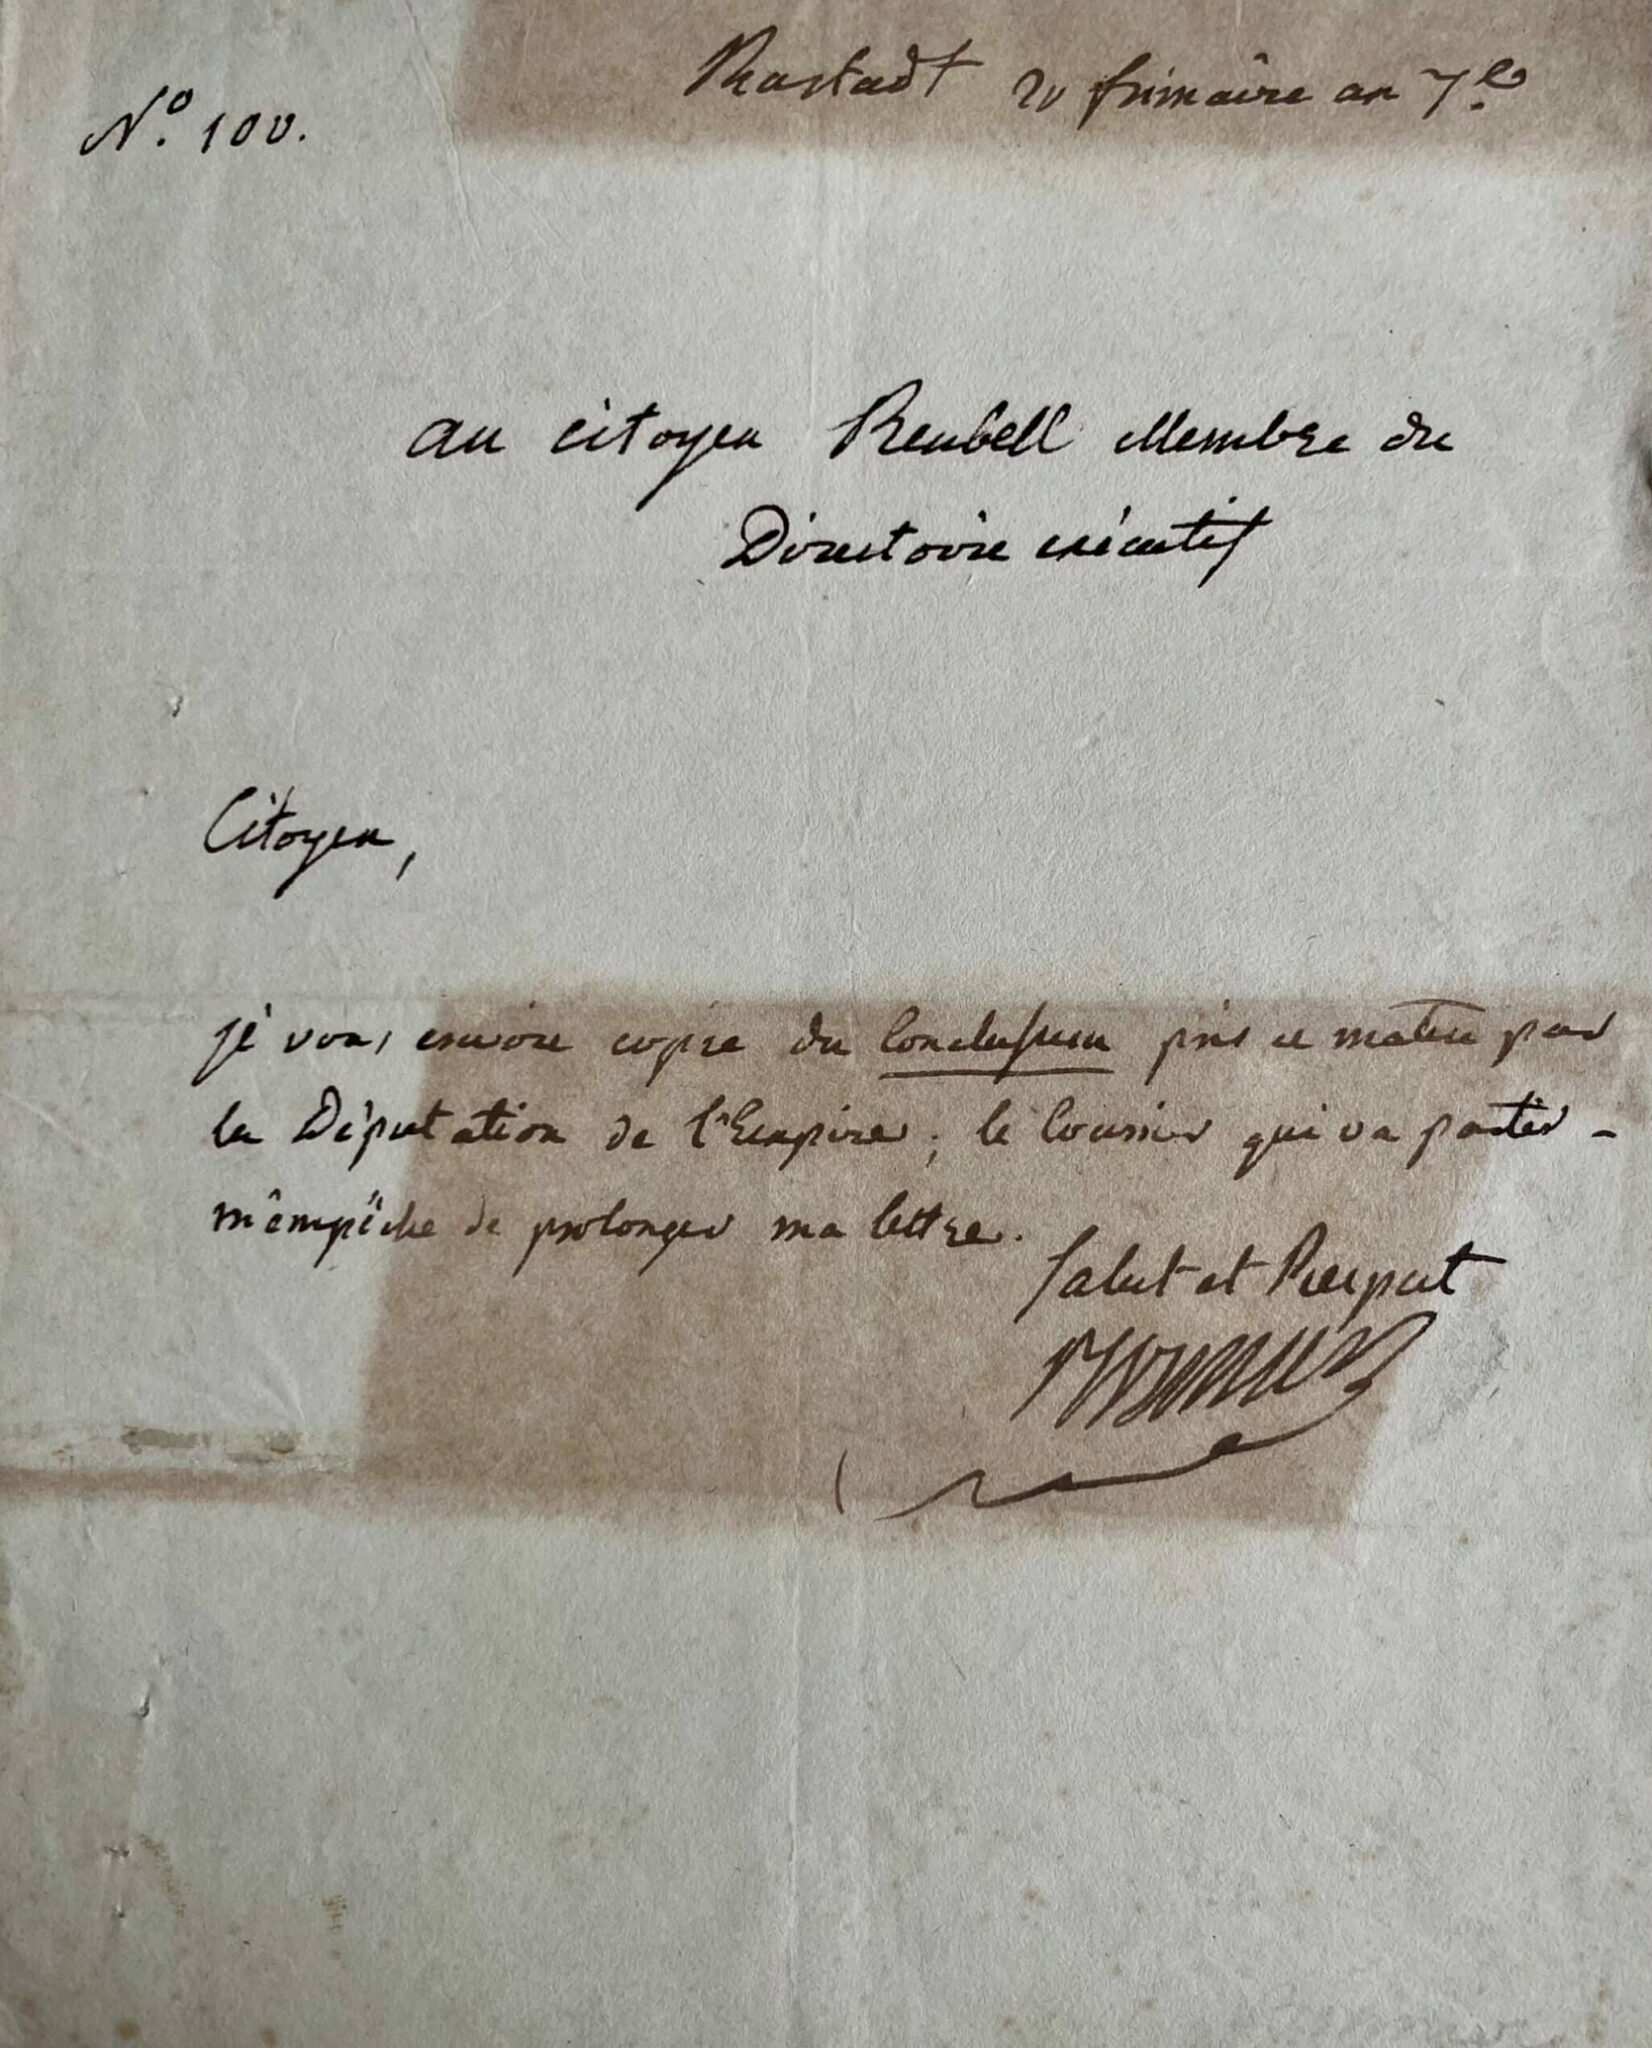 Rastadt 20 frimaire an 7.e
N.o 100.
au citoyen Reubell Membre du
Directoire exécutif
Citoyen,
je vous envoie copie du Conclusum pris ce matin par
la Députation de l'Empire; le Courier qui va partir
m'empêche de prolonger ma lettre.
Salut et Respect